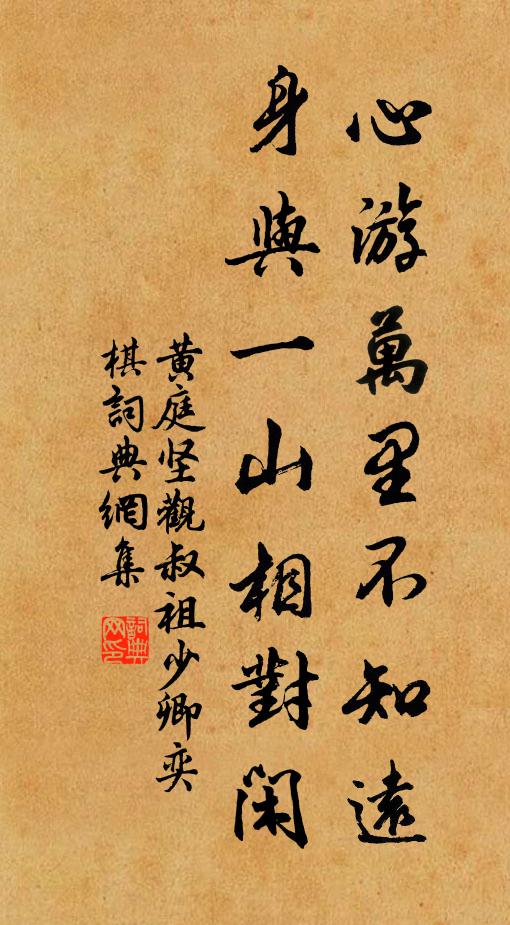 心游萬里不知遠
身與一山相對閑
黄庭坚觀叔祖少卿奕
棋詞典網集
詞典网印